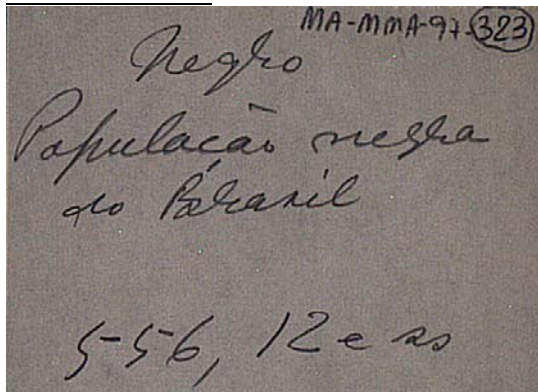 MA-MMA-97-323
Negro
População negra
do Brasil
556, 12 e ss